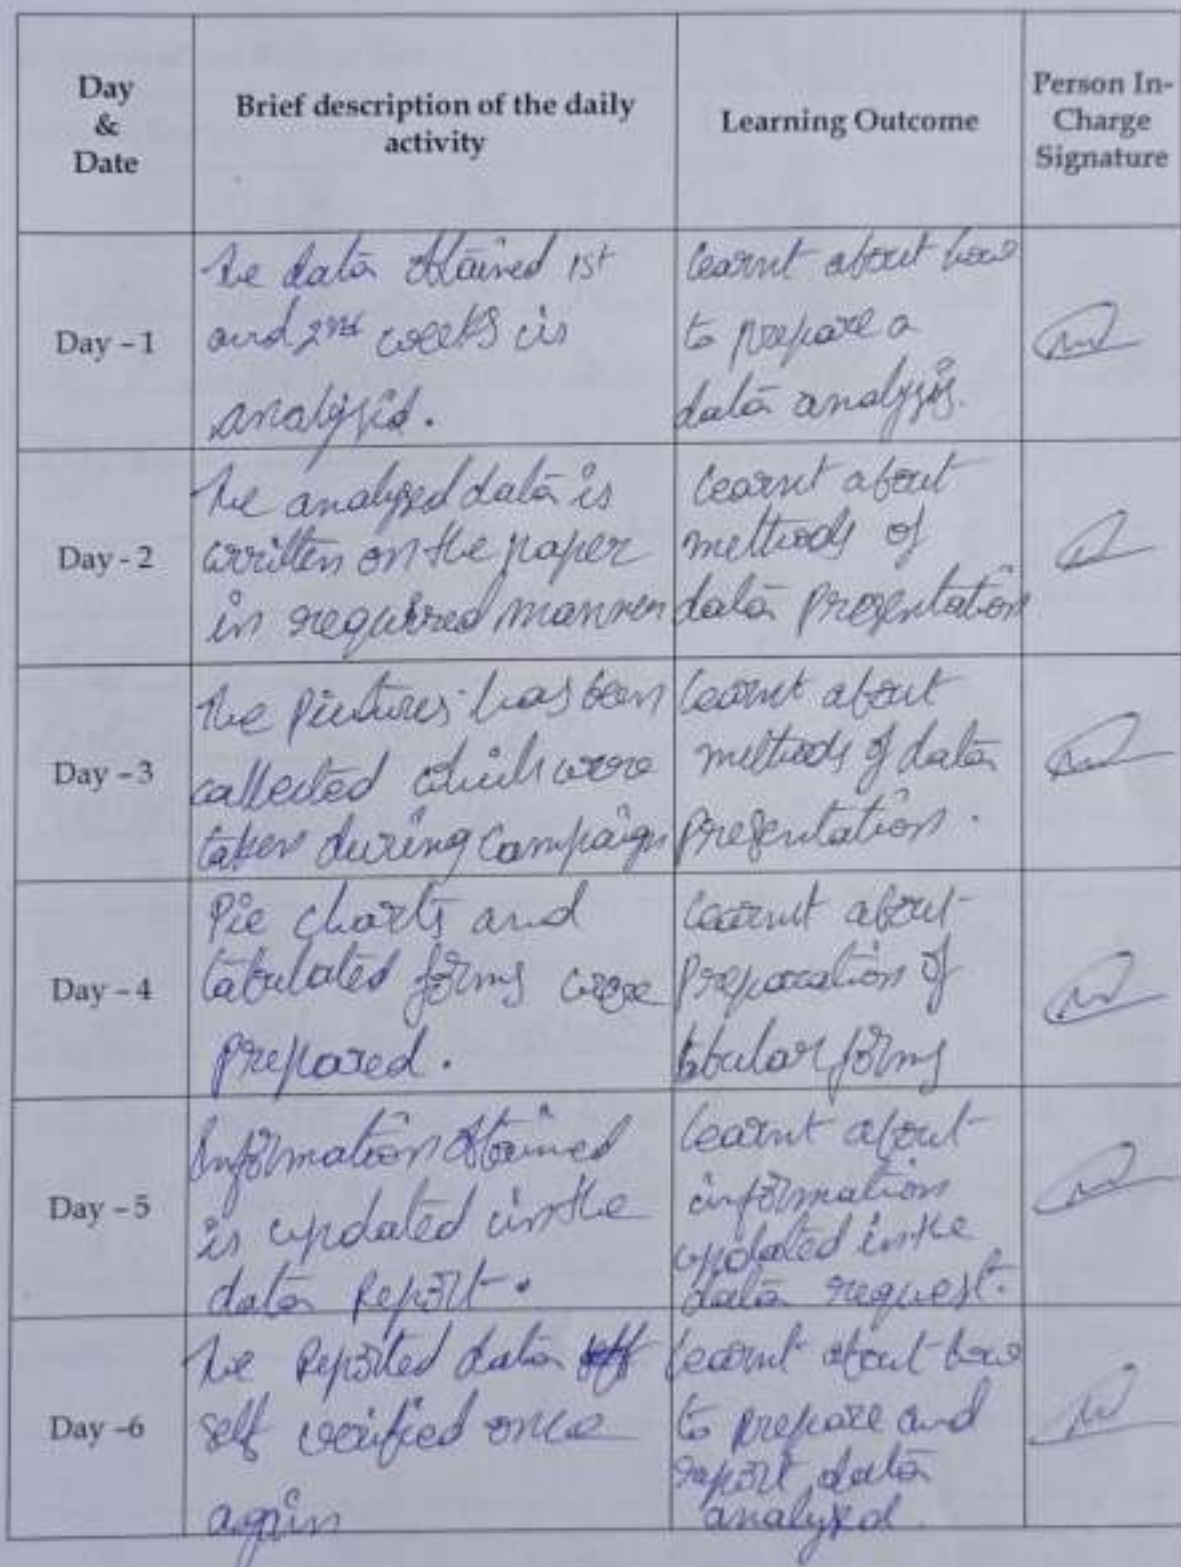 Day
&
Date
Brief description of the daily
activity
Learning Outcome
Person In-
Charge
Signature
Day – 1
The data obtained 1st
and 2nd weeks is
analysed.
Learnt about how
to prepare a
data analysis.
Day - 2
The analysed data is
written on the paper
in required manner
Learnt about
methods of
data presentation
Day – 3
The Pictures has been
collected which were
taken during Campaign
Learnt about
methods of data
presentation.
Day – 4
Pie charts and
tabulated forms were
prepared.
Learnt about
preparation of
tabular forms
Day – 5
Information obtained
is updated in the
data Report.
Learnt about
information
updated in the
data request.
Day –6
The Reported data
self verified once
again
Learnt about how
to prepare and
report data
analysed.